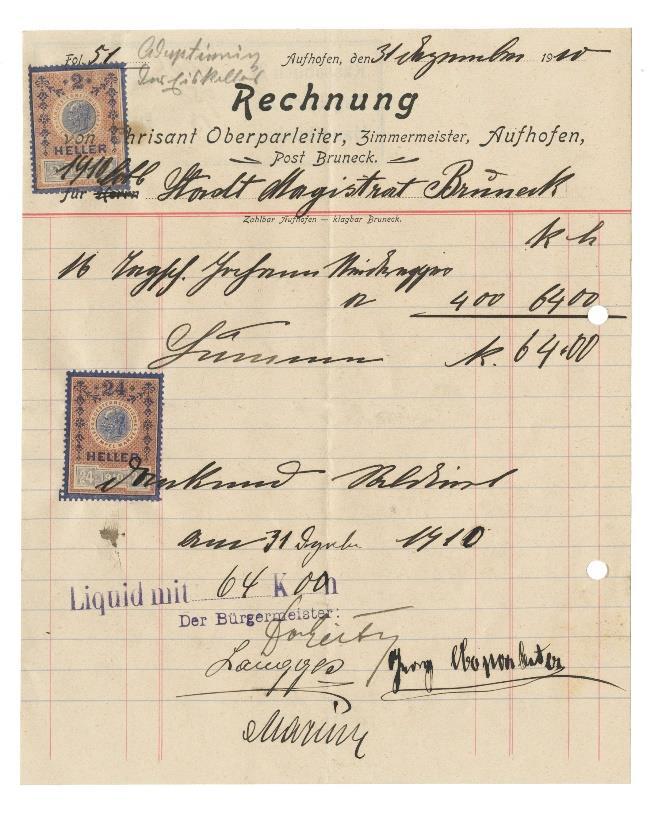 Fol. 51
Aufhofen, den 31 Dezember 1910
2
HELLER
Rechnung
von Chrisant Oberparleiter, Zimmermeister, Aufhofen,
Post Bruneck.
für Herrn Stadt Magistrat Bruneck
Zahlbar Aufhofen — klagbar Bruneck.
K h
16 Tagsch. Johann
a 4 00 64 00
Summa K. 64.00
24
HELLER
dankend
am 31 Dezbr 1910
Liquid mit 64 K 00 h
Der Bürgermeister:
Georg Oberparleiter